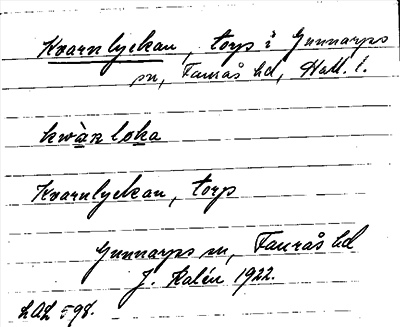 Kvarnlyckan, torp i Gunnarps
sn, Faurås hd, Hall. l.
kwàrn loka
Kvarnlyckan, torp
Gunnarps sn, Faurås hd
J. Kalén 1922.
LAL 598.